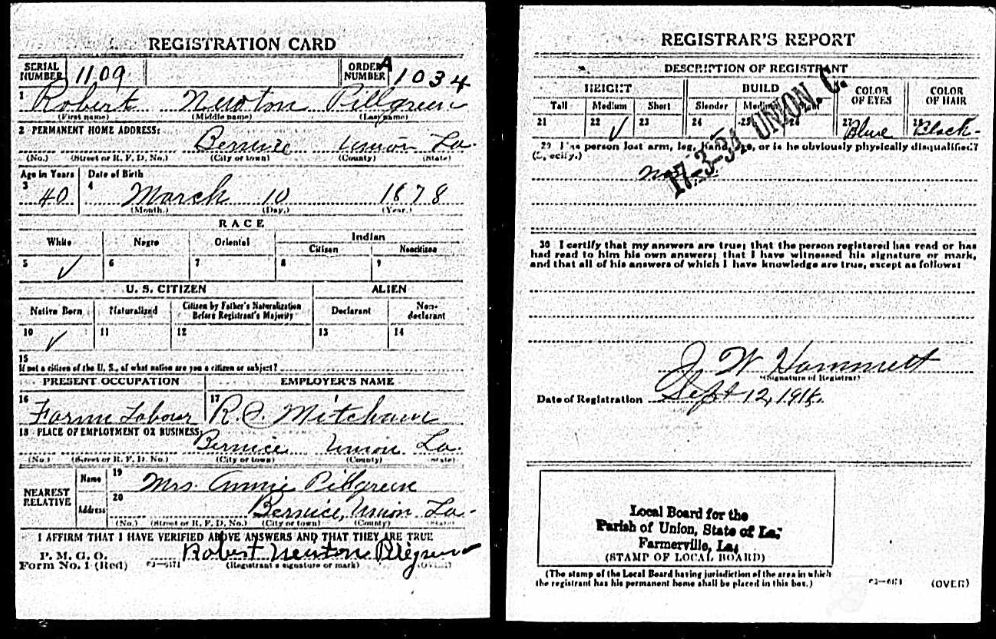 REGISTRATION CARD
SERIAL NUMBER 1109 ORDER NUMBER A1034
1 Robert Newton Pillgreen
(First name) (Middle name) (Last name)
2 PERMANENT HOME ADDRESS:
Bernice Union La
(No.) (Street or R. F. D. No.) (City or town) (County) (State)
Age in Years Date of Birth
3 40 4 March 10 1878
(Month.) (Day.) (Year.)
RACE
White Negro Oriental Indian
Citizen Noncitizen
5 ✓ 6 7 8 9
U. S. CITIZEN ALIEN
Native Born Naturalized Citizen by Father's Naturalization Before Registrant's Majority Declarant Non-declarant
10 ✓ 11 12 13 14
15
If not a citizen of the U. S., of what nation are you a citizen or subject?
PRESENT OCCUPATION EMPLOYER'S NAME
16 Farm Labour 17 R. C. Mitcham
18 PLACE OF EMPLOYMENT OR BUSINESS:
Bernice Union La.
(No.) (Street or R. F. D. No.) (City or town) (County) (State)
NEAREST RELATIVE Name 19 Mrs. Annie Pillgreen
Address 20 Bernice, Union. La.
(No.) (Street or R. F. D. No.) (City or town) (County) (State)
I AFFIRM THAT I HAVE VERIFIED ABOVE ANSWERS AND THAT THEY ARE TRUE
P. M. G. O.
Form No. 1 (Red) Robert Newton Pillgreen
(Registrant's signature or mark) (OVER)
REGISTRAR'S REPORT
DESCRIPTION OF REGISTRANT
HEIGHT BUILD COLOR OF EYES COLOR OF HAIR
Tall Medium Short Slender Medium
21 22 ✓ 23 24 25 26 27 Blue 28 Black
17-3-34 UNION. C.
29 Has person lost arm, leg, hand, eye, or is he obviously physically disqualified?
(Specify.)
no
30 I certify that my answers are true; that the person registered has read or has
had read to him his own answers; that I have witnessed his signature or mark,
and that all of his answers of which I have knowledge are true, except as follows:
J W Hammett
(Signature of Registrar)
Date of Registration Sept 12, 1918.
Local Board for the
Parish of Union, State of La.
Farmerville, La.
(STAMP OF LOCAL BOARD)
(The stamp of the Local Board having jurisdiction of the area in which
the registrant has his permanent home shall be placed in this box.)
(OVER)